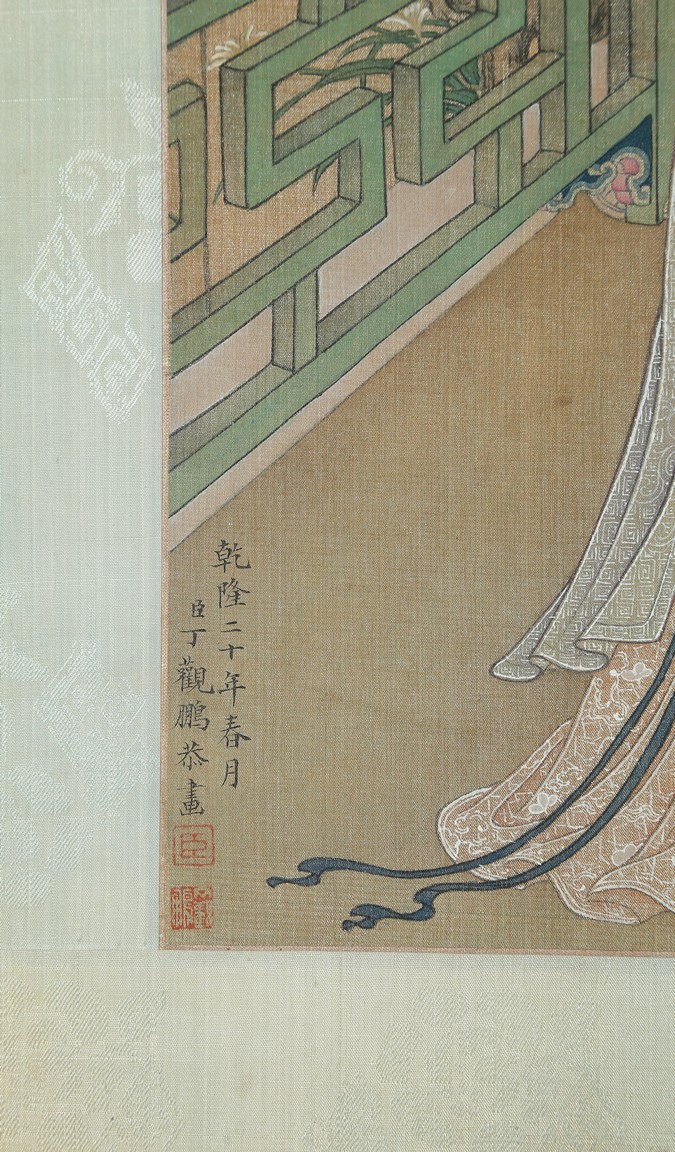 乾隆二十年春月
臣丁觀鵬恭畫
臣